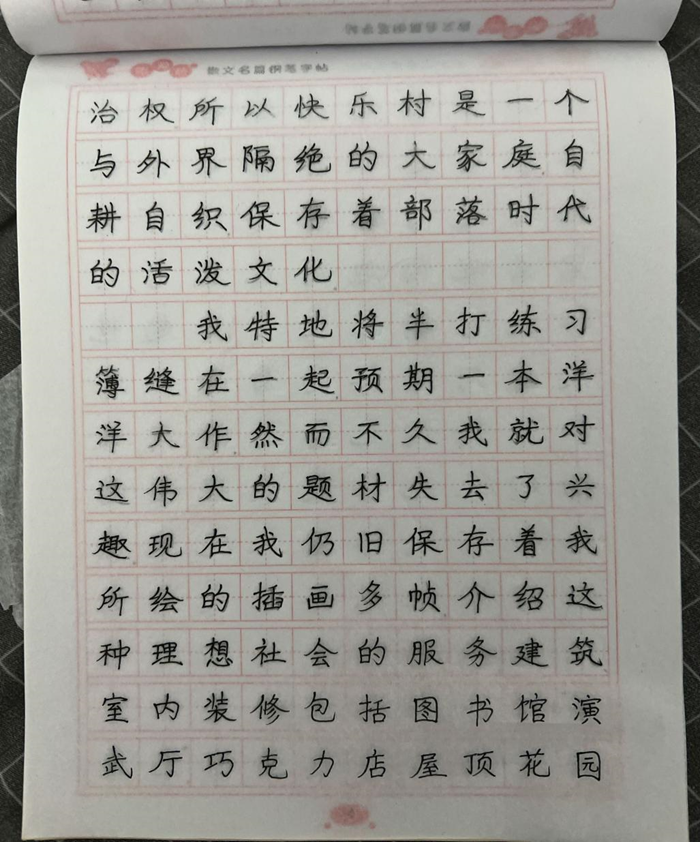 散文名篇钢笔字帖
治权所以快乐村是一个
与外界隔绝的大家庭自
耕自织保存着部落时代
的活泼文化
我特地将半打练习
簿缝在一起预期一本洋
洋大作然而不久我就对
这伟大的题材失去了兴
趣现在我仍旧保存着我
所绘的插画多帧介绍这
种理想社会的服务建筑
室内装修包括图书馆演
武厅巧克力店屋顶花园